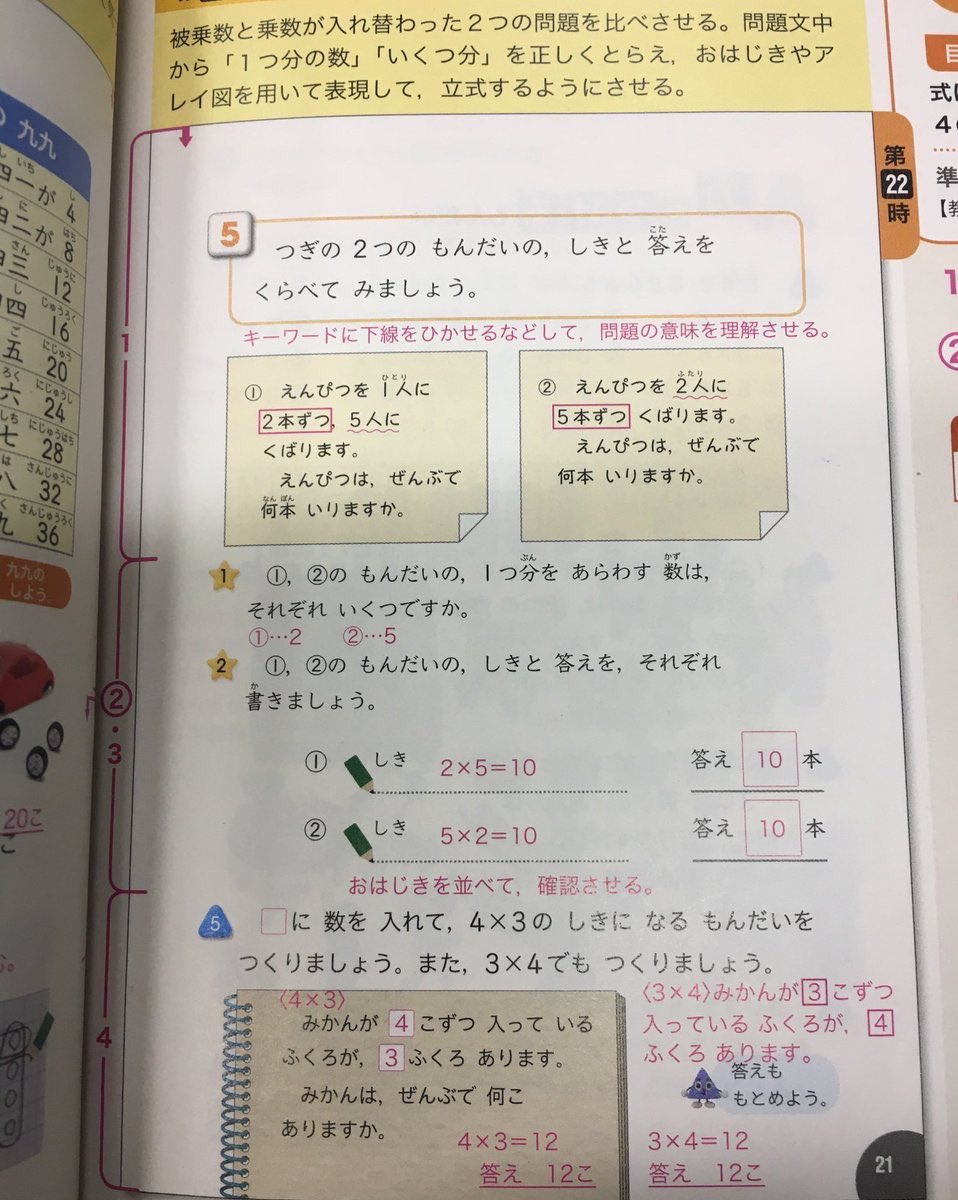 被乗数と乗数が入れ替わった2つの問題を比べさせる。問題文中
から「1つ分の数」「いくつ分」を正しくとらえ，おはじきやア
レイ図を用いて表現して，立式するようにさせる。
九九
しいち し
四一が 4
しに はち
四二が 8
さん じゅうに
四三 12
じゅうろく
四 16
ご にじゅう
五 20
ろく にじゅうし
六 24
しち にじゅうはち
七 28
は さんじゅうに
八 32
く さんじゅうろく
九 36
九九の
しよう。
20こ
こ
第
22
時
式に
準
1
②
1
②・3
4
5
つぎの 2つの もんだいの，しきと 答えを
こた
くらべて みましょう。
キーワードに下線をひかせるなどして，問題の意味を理解させる。
① えんぴつを 1人に
ひとり
2本ずつ，5人に
くばります。
えんぴつは，ぜんぶで
何本 いりますか。
なんぼん
② えんぴつを 2人に
ふたり
5本ずつ くばります。
えんぴつは，ぜんぶで
何本 いりますか。
1 ①，②の もんだいの，1つ分を あらわす 数は，
ぶん かず
それぞれ いくつですか。
①…2 ②…5
2 ①，②の もんだいの，しきと 答えを，それぞれ
書きましょう。
か
① しき 2×5＝10 答え 10 本
② しき 5×2＝10 答え 10 本
おはじきを並べて，確認させる。
5 □に 数を 入れて，4×3の しきに なる もんだいを
つくりましょう。また，3×4でも つくりましょう。
〈4×3〉
みかんが 4 こずつ 入って いる
ふくろが，3 ふくろ あります。
みかんは，ぜんぶで 何こ
ありますか。
4×3＝12
答え 12こ
〈3×4〉みかんが3こずつ
入っている ふくろが，4
ふくろ あります。
答えも
もとめよう。
3×4＝12
答え 12こ
21